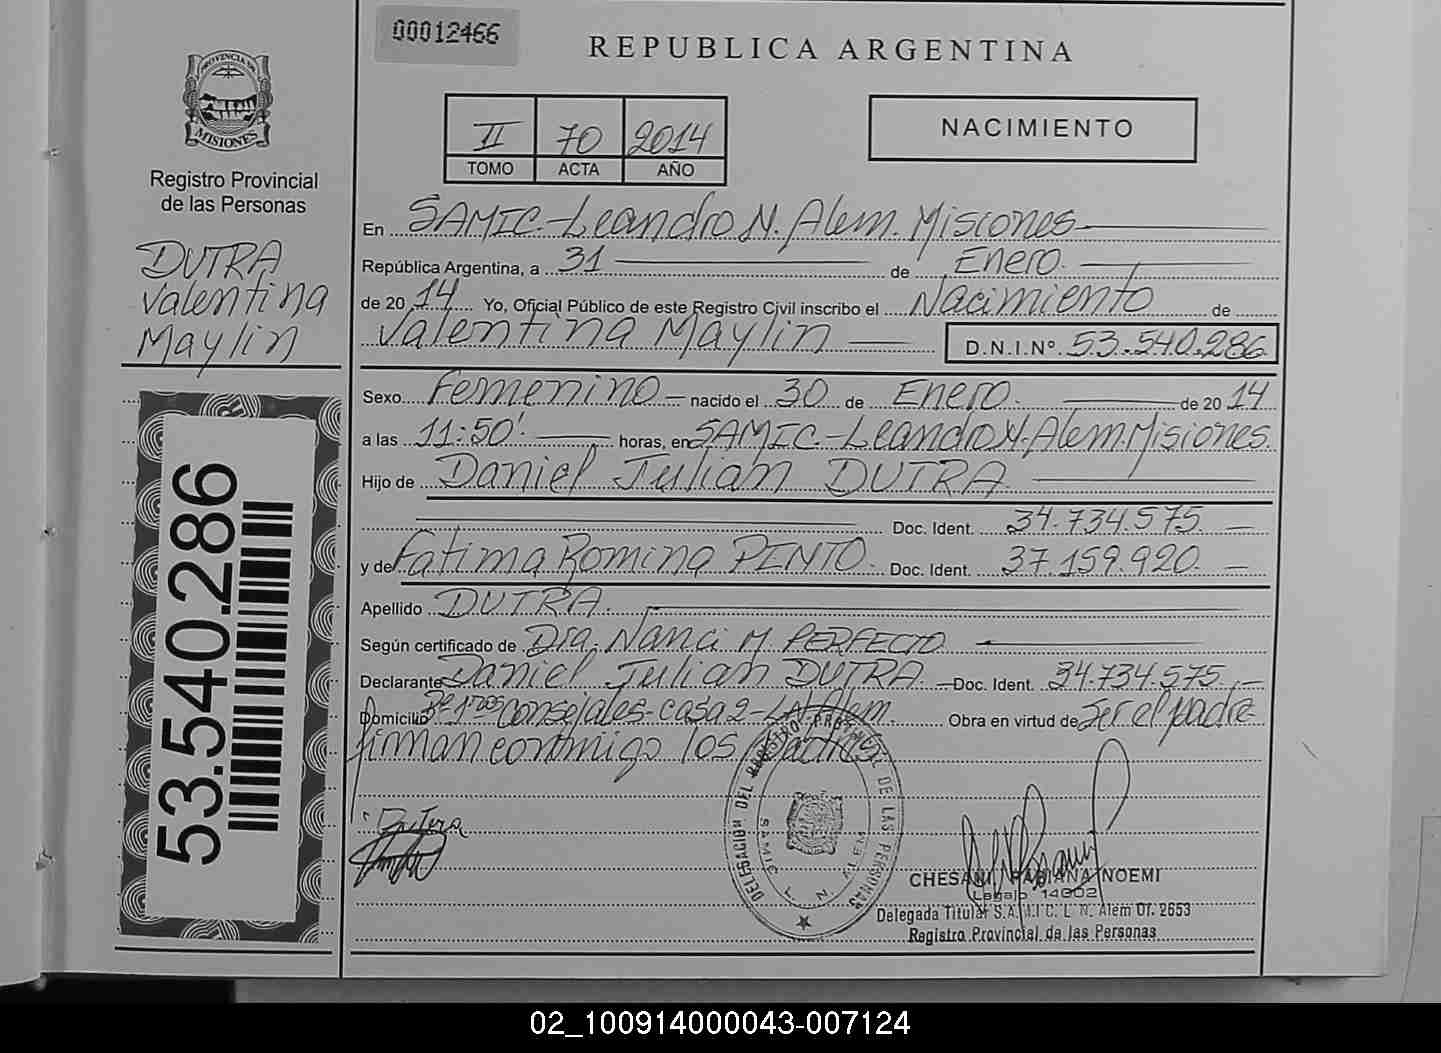 00012466
REPUBLICA ARGENTINA
PROVINCIA DE
MISIONES
Registro Provincial
de las Personas
DUTRA
Valentina
Maylin
53.540.286
II 70 2014
TOMO ACTA AÑO
NACIMIENTO
En SAMIC-Leandro N. Alem. Misiones
República Argentina, a 31 de Enero.
de 20 14 Yo, Oficial Público de este Registro Civil inscribo el Nacimiento de
Valentina Maylin D.N.I.Nº. 53.540.286
Sexo Femenino nacido el 30 de Enero. de 20 14
a las 11:50'. horas, en SAMIC-Leandro N. Alem. Misiones.
Hijo de Daniel Julian DUTRA
Doc. Ident. 34.734.575.
y de Fatima Romina PINTO. Doc. Ident. 37.159.920.
Apellido DUTRA.
Según certificado de Dra. Nanci M. PERFECTO
Declarante Daniel Julian DUTRA. Doc. Ident. 34.734.575.
Domicilio Bº 1ros Consejales-casa 2-LN Alem. Obra en virtud de ser el padre
firman conmigo los padres
Dutra
DELEGACION DEL REGISTRO PROVINCIAL DE LAS PERSONAS
SAMIC L. N. ALEM
CHESANI FABIANA NOEMI
Legajo 14002
Delegada Titular S.A.M.I.C. L. N. Alem Of. 2653
Registro Provincial de las Personas
02_100914000043-007124